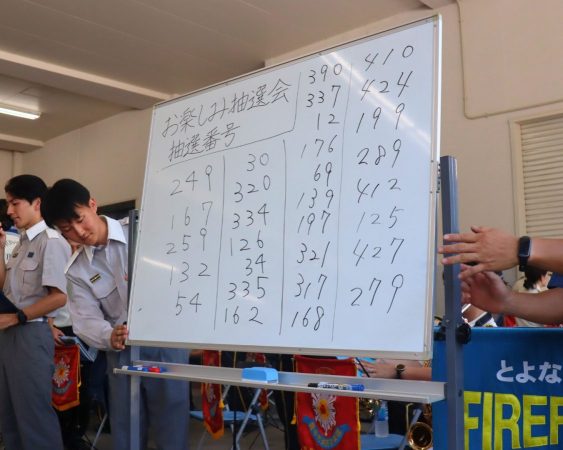 お楽しみ抽選会
抽選番号
249
167
259
132
54
30
320
334
126
34
335
162
390
337
12
176
69
139
197
321
317
168
410
424
199
289
412
125
427
279
とよな
FIREF